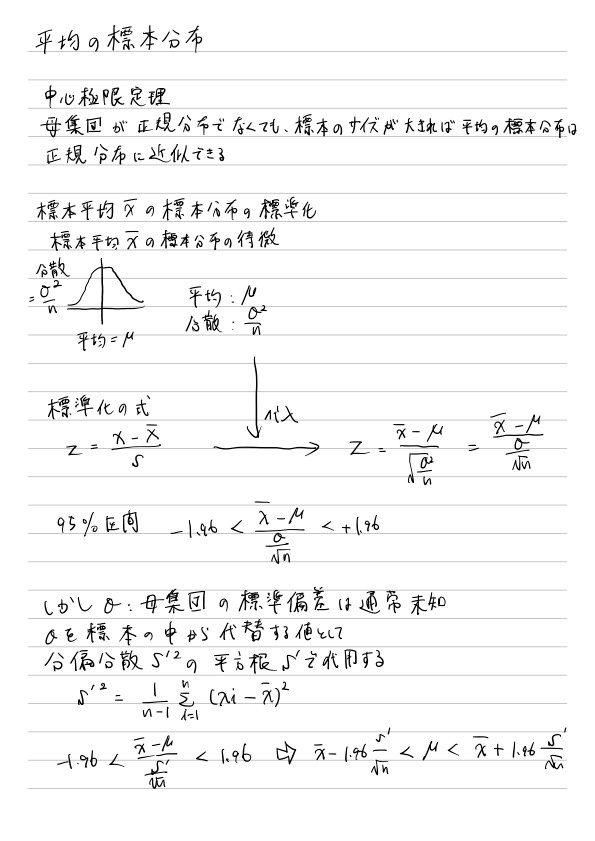 平均の標本分布
中心極限定理
母集団が正規分布でなくても、標本のサイズが大きれば平均の標本分布は
正規分布に近似できる
標本平均 x̄ の標本分布の標準化
標本平均 x̄ の標本分布の特徴
分散 = σ²/n
平均 = μ
平均 : μ
分散 : σ²/n
代入
標準化の式
z = (x - x̄)/s → Z = (x̄ - μ)/√(σ²/n) = (x̄ - μ)/(σ/√n)
95%区間 -1.96 < (x̄ - μ)/(σ/√n) < +1.96
しかし σ : 母集団の標準偏差は通常未知
σを標本の中から代替する値として
分偏分散 s'² の平方根 s' で代用する
s'² = 1/(n-1) Σ_{i=1}^{n} (xi - x̄)²
-1.96 < (x̄ - μ)/(s'/√n) < 1.96 ⇨ x̄ - 1.96 s'/√n < μ < x̄ + 1.96 s'/√n